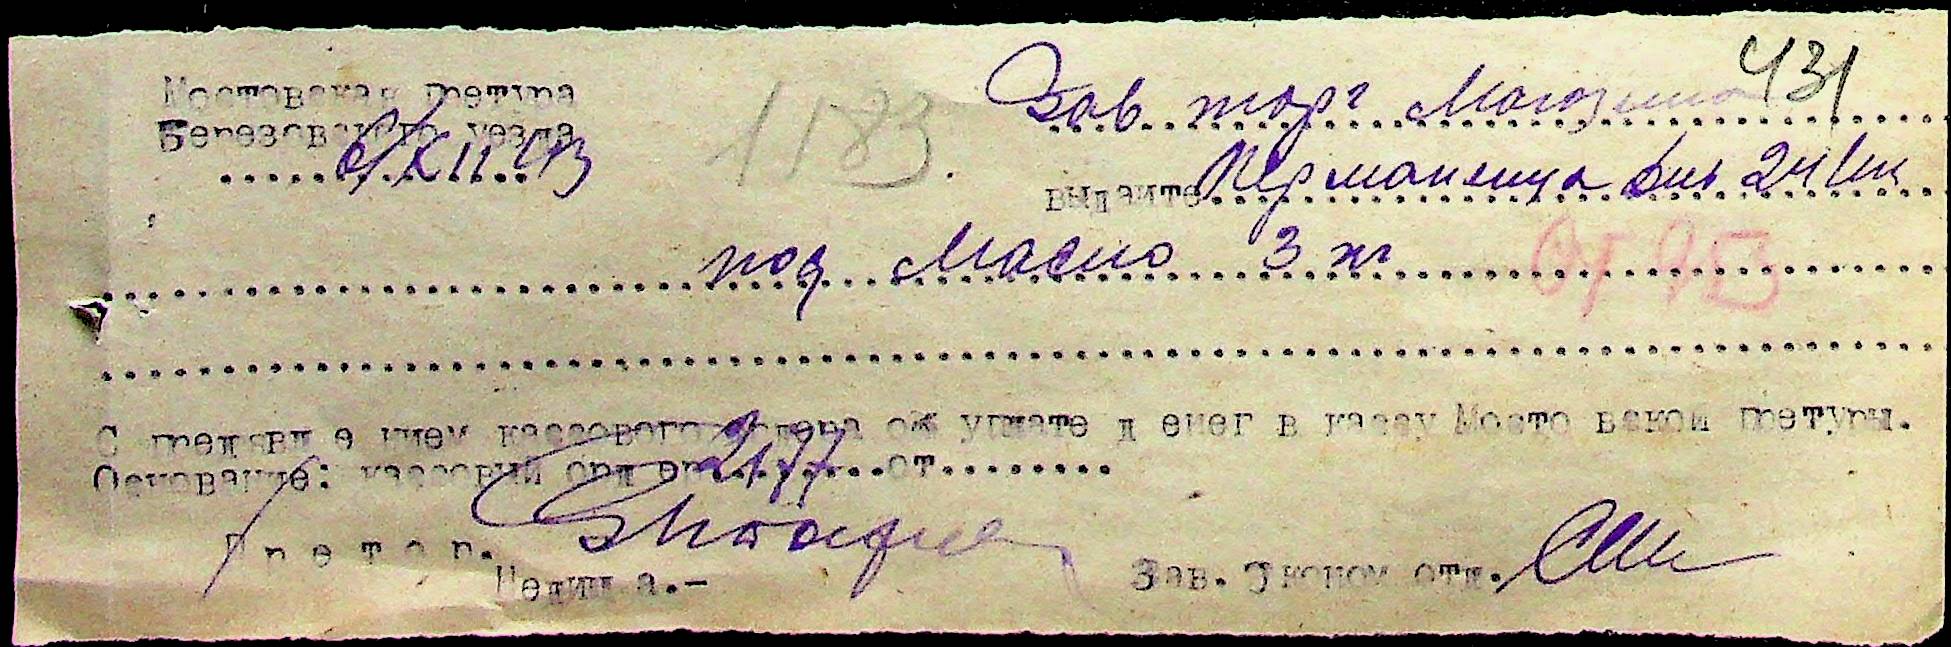 431
Мостовская претура
Березовского уезда
6/XII 43
1183
Зав торг Магазина
выдайте
под Масло 3 кг
С предявл е нием кассового ордера об уплате д енег в кассу Мосто вской претуры.
Основание: кассовый орд ер 2177 от
П р е т о р.
Зав. Эконом отд.